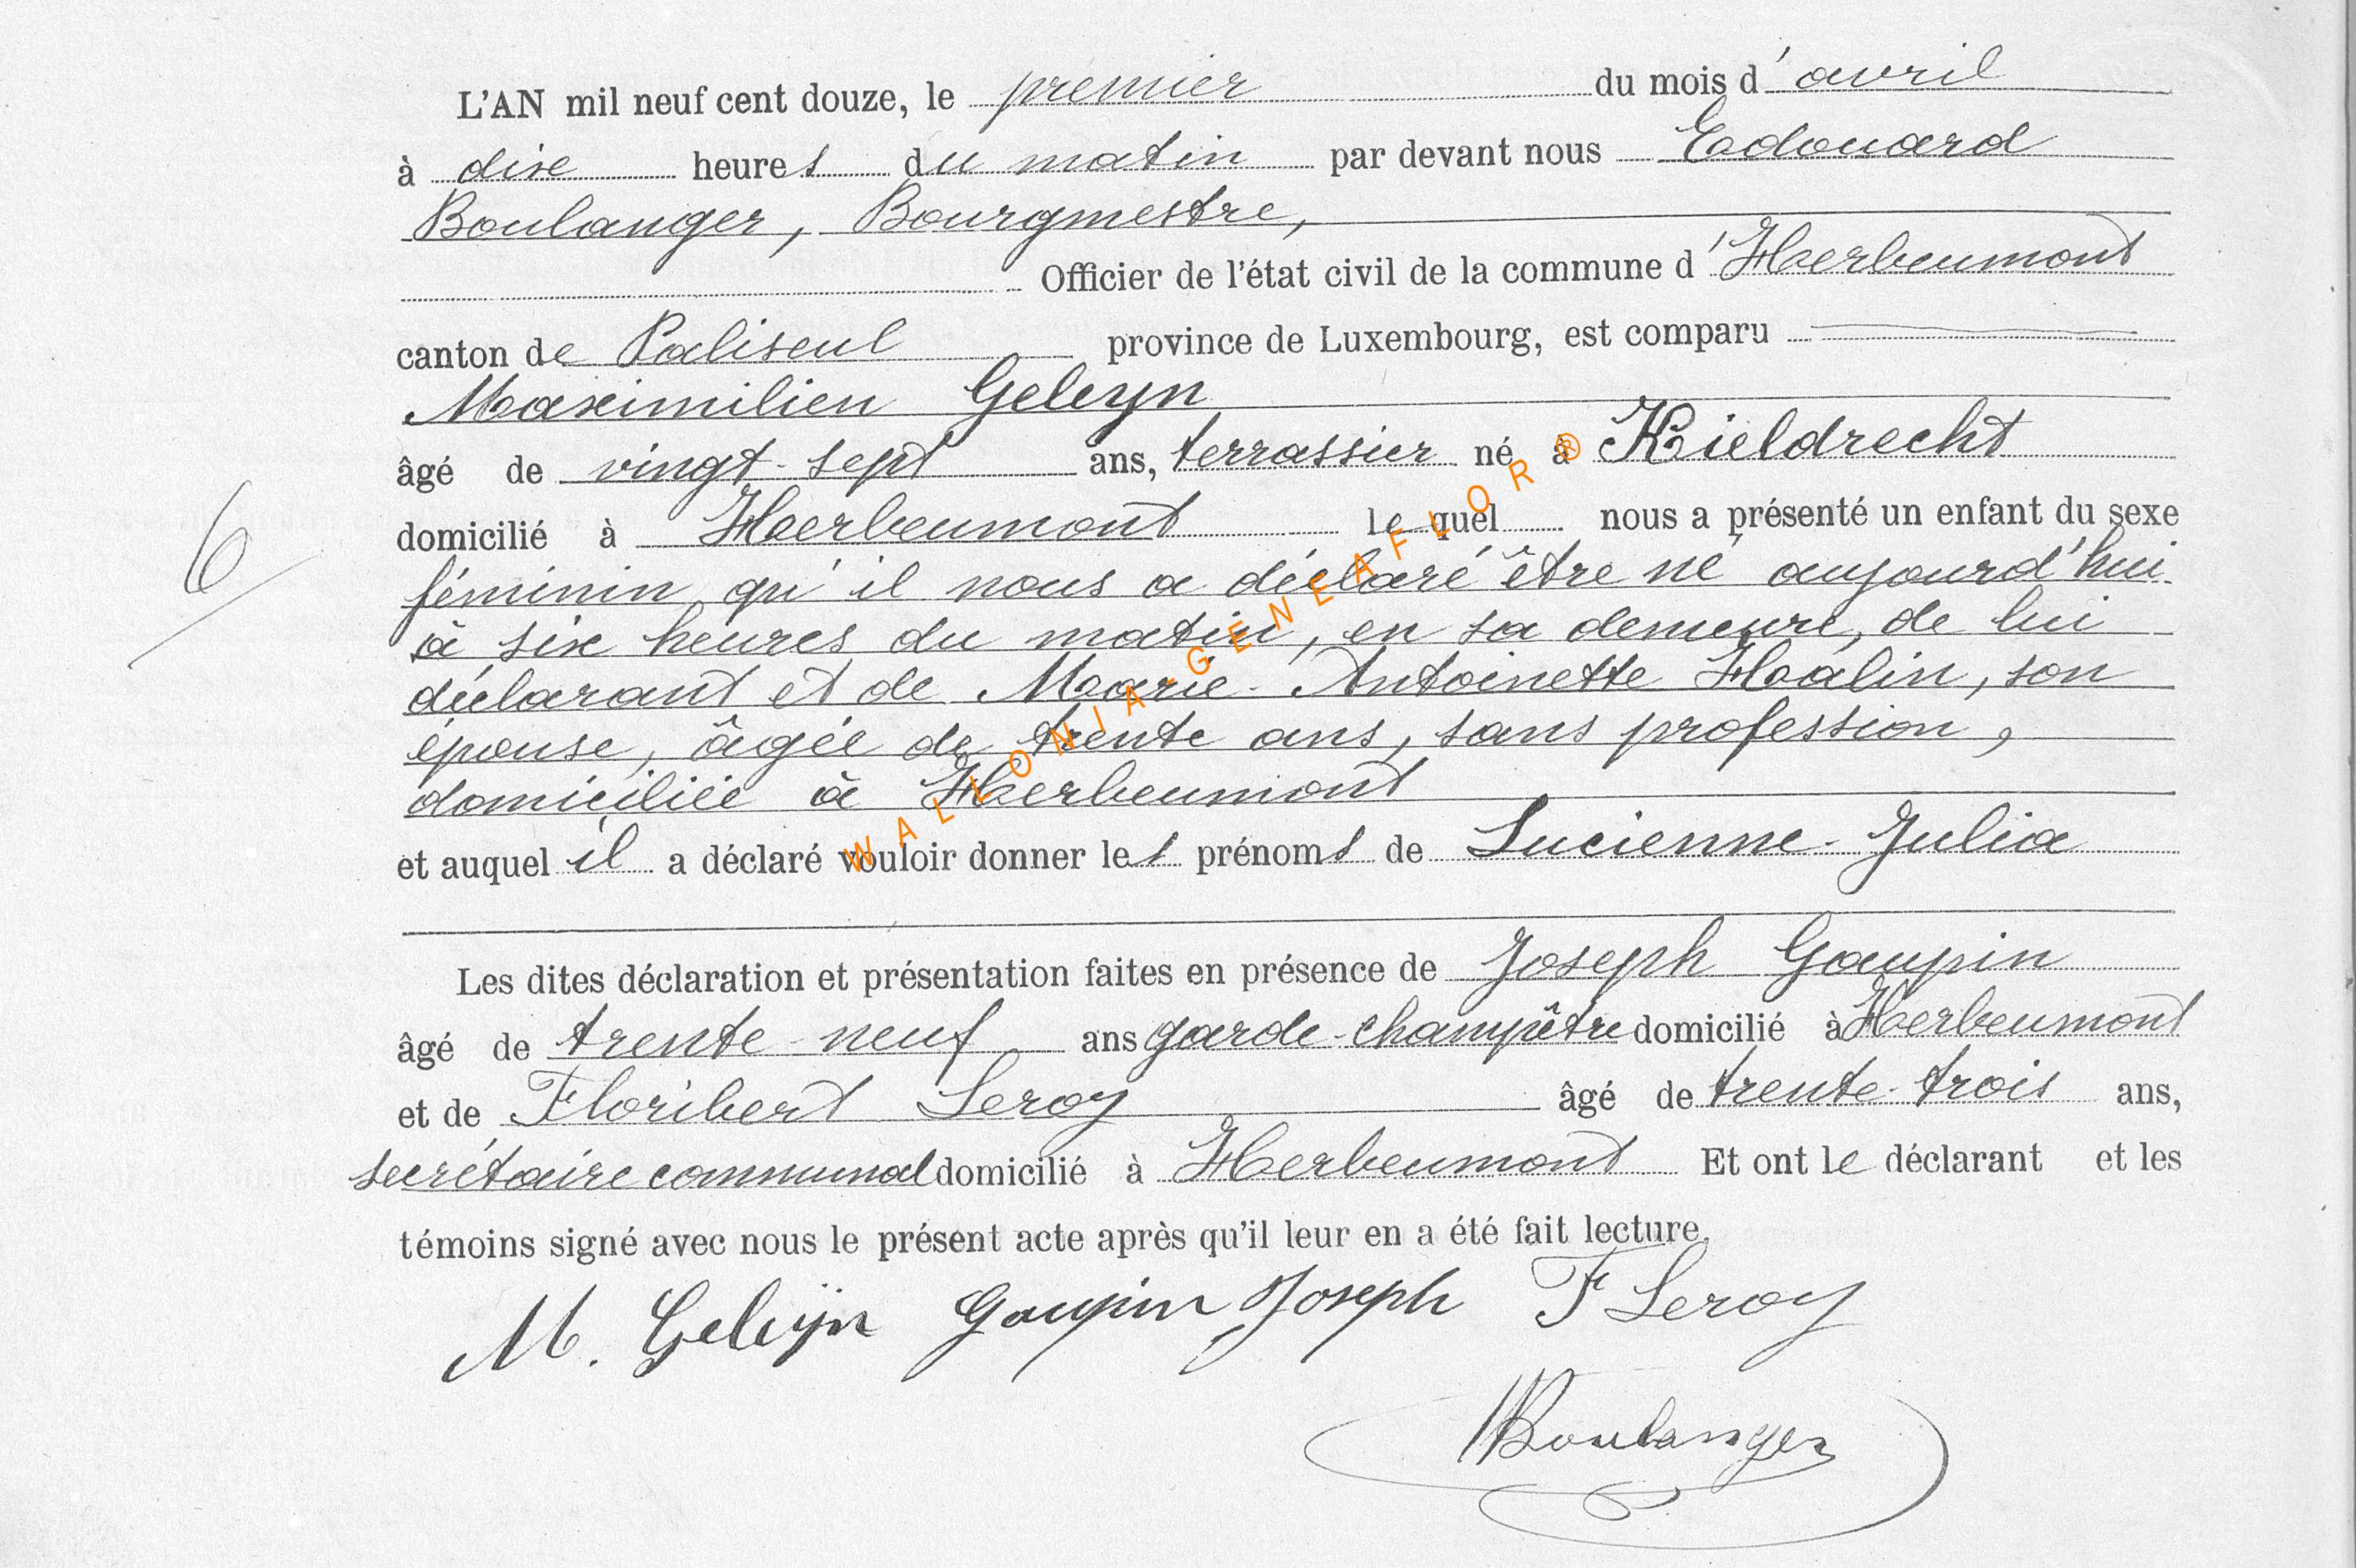 L'AN mil neuf cent douze, le premier du mois d'avril
à dix heures du matin par devant nous Edouard
Boulanger, Bourgmestre,
Officier de l'état civil de la commune d'Herbeumont
canton de Paliseul province de Luxembourg, est comparu
Maximilien Geleyn
âgé de vingt-sept ans, terrassier né à Kieldrecht
domicilié à Herbeumont lequel nous a présenté un enfant du sexe
6
féminin qu'il nous a déclaré être né aujourd'hui
à six heures du matin, en sa demeure, de lui
déclarant et de Marie-Antoinette Halin, son
épouse, âgée de trente ans, sans profession,
domiciliée à Herbeumont
et auquel il a déclaré vouloir donner les prénoms de Lucienne-Julia
Les dites déclaration et présentation faites en présence de Joseph Goupin
âgé de trente-neuf ans garde-champêtre domicilié à Herbeumont
et de Floribert Leroy âgé de trente-trois ans,
secrétaire communal domicilié à Herbeumont Et ont le déclarant et les
témoins signé avec nous le présent acte après qu'il leur en a été fait lecture.
M. Geleyn Goupin Joseph F Leroy
Boulanger
WALLONIA-GENEAFLOR®